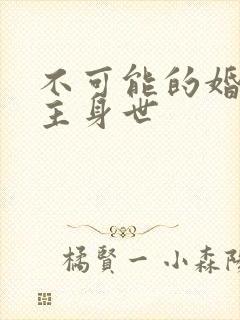 不可能的婚
主身世
橘賢一 小森陽